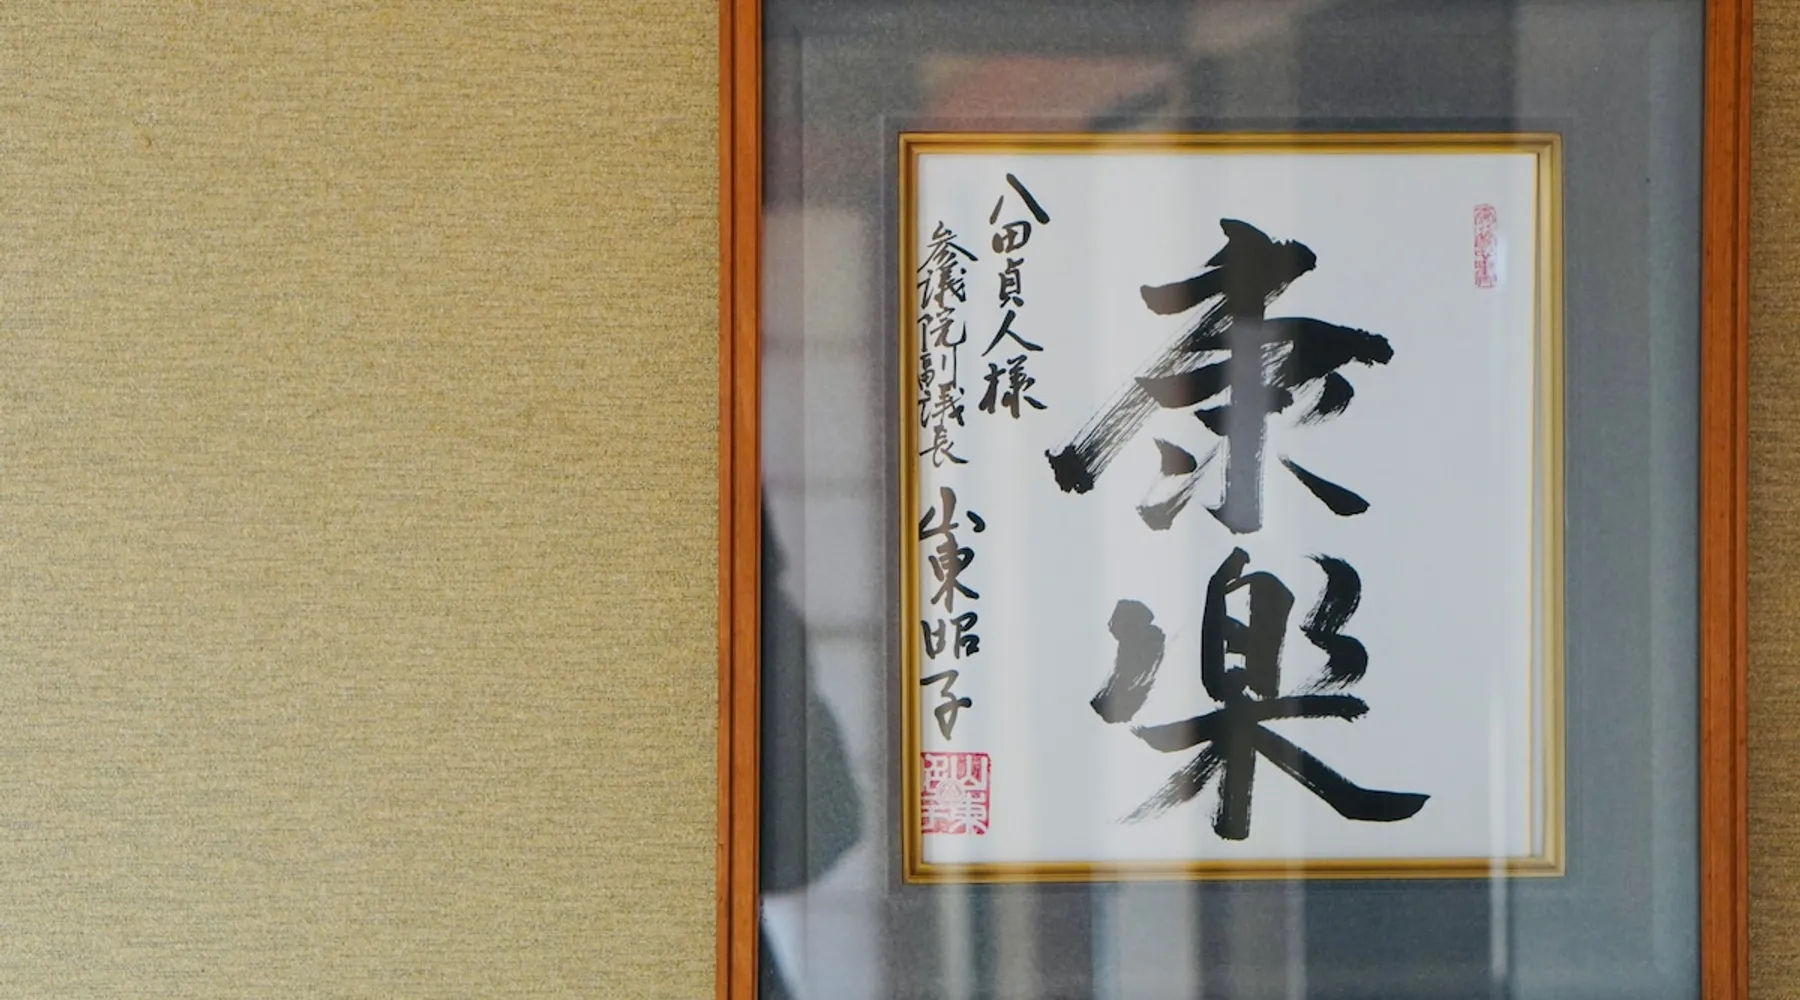 康楽
八田貞人様
参議院副議長 山東昭子
山東昭子